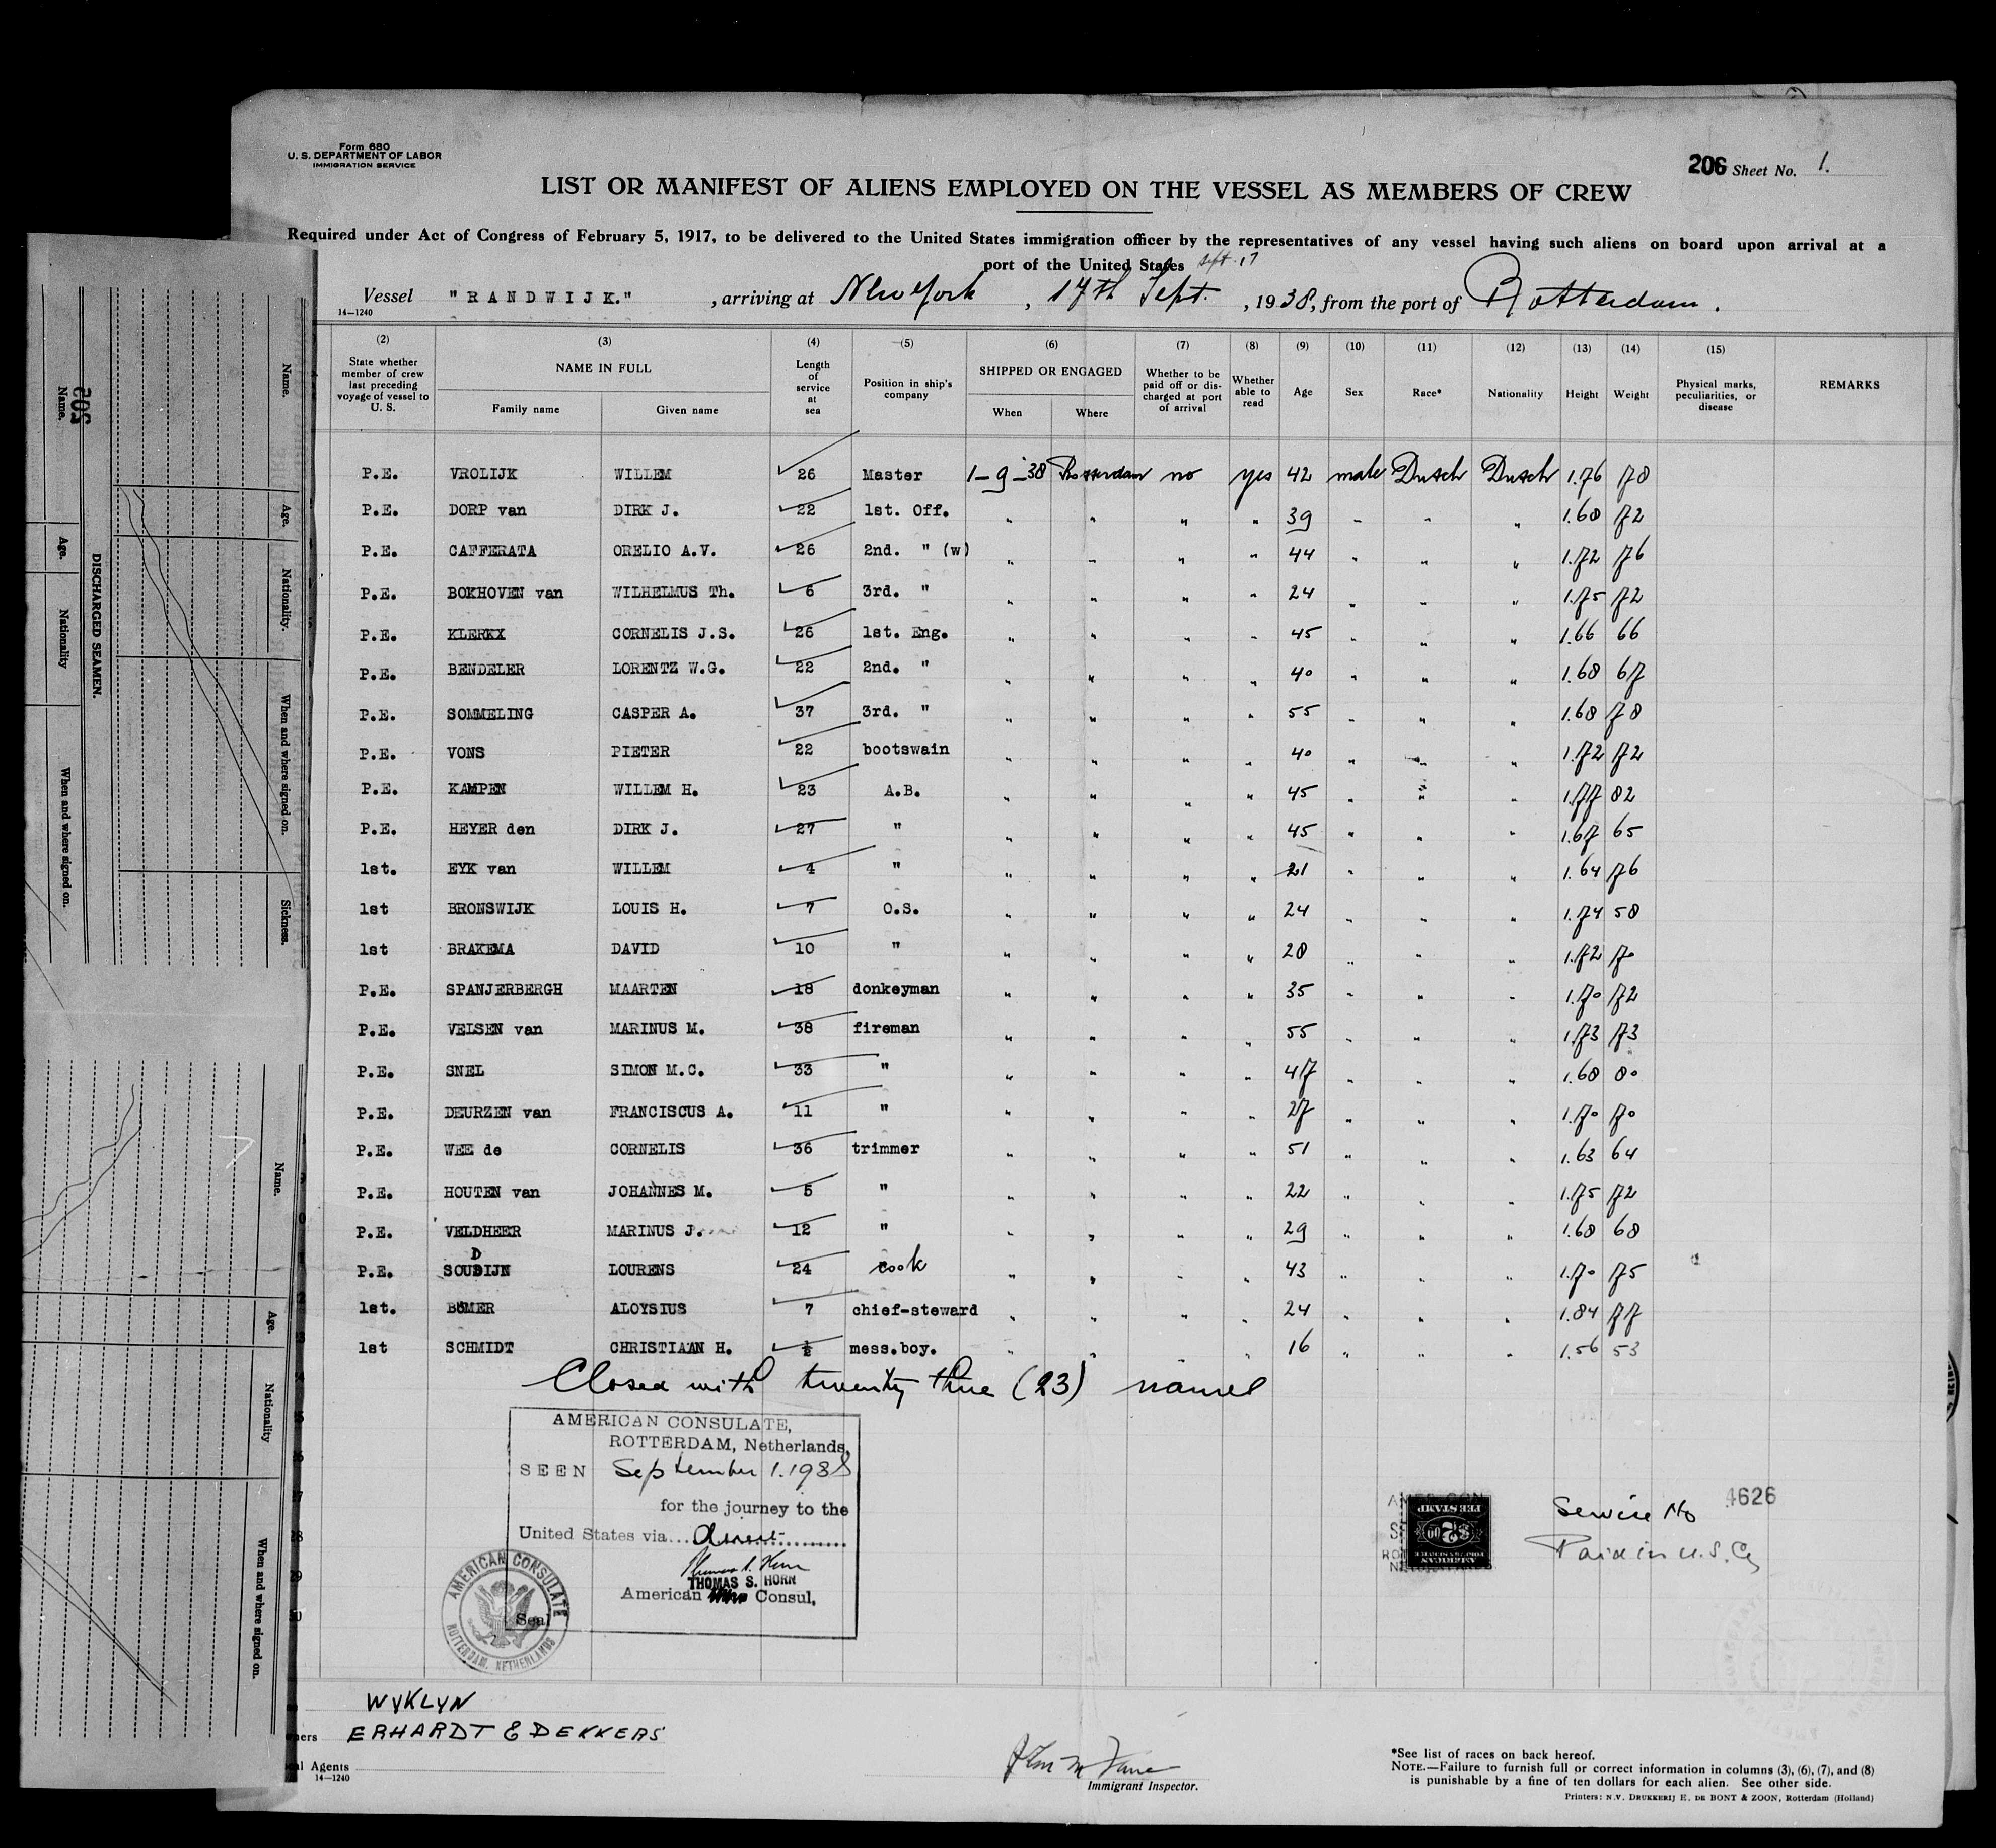 Form 680
U. S. DEPARTMENT OF LABOR
IMMIGRATION SERVICE
206 Sheet No. 1.
LIST OR MANIFEST OF ALIENS EMPLOYED ON THE VESSEL AS MEMBERS OF CREW
Required under Act of Congress of February 5, 1917, to be delivered to the United States immigration officer by the representatives of any vessel having such aliens on board upon arrival at a
port of the United States Sept. 17
Vessel "RANDWIJK." , arriving at New York , 17th Sept. , 1938, from the port of Rotterdam.
14—1240
(2) (3) (4) (5) (6) (7) (8) (9) (10) (11) (12) (13) (14) (15)
State whether member of crew last preceding voyage of vessel to U. S. NAME IN FULL Family name Given name Length of service at sea Position in ship's company SHIPPED OR ENGAGED When Where Whether to be paid off or discharged at port of arrival Whether able to read Age Sex Race* Nationality Height Weight Physical marks, peculiarities, or disease REMARKS
P.E. VROLIJK WILLEM 26 Master 1-9-38 Rotterdam no yes 42 male Dutch Dutch 1.76 78
P.E. DORP van DIRK J. 22 1st. Off. " " " " 39 " " " 1.68 72
P.E. CAFFERATA ORELIO A.V. 26 2nd. " (w) " " " " 44 " " " 1.72 76
P.E. BOKHOVEN van WILHELMUS Th. 6 3rd. " " " " " 24 " " " 1.75 72
P.E. KLERKX CORNELIS J.S. 26 1st. Eng. " " " " 45 " " " 1.66 66
P.E. BENDELER LORENTZ W.G. 22 2nd. " " " " " 40 " " " 1.68 67
P.E. SOMMELING CASPER A. 37 3rd. " " " " " 55 " " " 1.68 78
P.E. VONS PIETER 22 bootswain " " " " 40 " " " 1.72 72
P.E. KAMPEN WILLEM H. 23 A.B. " " " " 45 " " " 1.77 82
P.E. HEYER den DIRK J. 27 " " " " " 45 " " " 1.67 65
1st. EYK van WILLEM 4 " " " " " 21 " " " 1.64 76
1st BRONSWIJK LOUIS H. 7 O.S. " " " " 24 " " " 1.74 58
1st BRAKEMA DAVID 10 " " " " " 28 " " " 1.72 70
P.E. SPANJERBERGH MAARTEN 18 donkeyman " " " " 35 " " " 1.70 72
P.E. VELSEN van MARINUS M. 38 fireman " " " " 55 " " " 1.73 73
P.E. SNEL SIMON M.C. 33 " " " " " 47 " " " 1.68 80
P.E. DEURZEN van FRANCISCUS A. 11 " " " " " 27 " " " 1.70 70
P.E. WEE de CORNELIS 36 trimmer " " " " 51 " " " 1.63 64
P.E. HOUTEN van JOHANNES M. 5 " " " " " 22 " " " 1.75 72
P.E. VELDHEER MARINUS J. 12 " " " " " 29 " " " 1.68 68
P.E. SOUDIJN LOURENS 24 cook " " " " 43 " " " 1.70 75
1st. BÖMER ALOYSIUS 7 chief-steward " " " " 24 " " " 1.84 77
1st SCHMIDT CHRISTIAAN H. ½ mess.boy. " " " " 16 " " " 1.56 53
Closed with twenty three (23) names
AMERICAN CONSULATE,
ROTTERDAM, Netherlands,
SEEN September 1. 1938
for the journey to the
United States via... direct
THOMAS S. HORN
American Consul.
Seal
AMERICAN CONSULATE
ROTTERDAM, NETHERLANDS
AMERICAN
$2.00
FEE STAMP
Service No 4626
Paid in U.S. Cy
WYKLYN
ERHARDT & DEKKERS
Agents
14—1240
Immigrant Inspector.
*See list of races on back hereof.
NOTE.—Failure to furnish full or correct information in columns (3), (6), (7), and (8)
is punishable by a fine of ten dollars for each alien. See other side.
Printers: N.V. DRUKKERIJ E. DE BONT & ZOON, Rotterdam (Holland)
205
DISCHARGED SEAMEN.
Name. Age. Nationality When and where signed on.
Name. Age. Nationality. When and where signed on. Sickness.
Name. Age. Nationality When and where signed on.